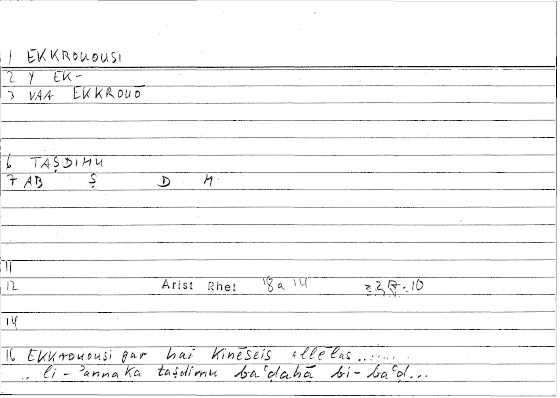 1 EKKROUOUSI
2 Y EK-
3 VAA EKKROUŌ
6 TAṢDIMU
7 AB Ṣ D M
11
12 Arist Rhet 18a 14 10
14
16 EKKROUOUSI gar hai kinēseis allēlas......
.. li-ʾannaka taṣdimu baʿḍahā bi-baʿḍ...